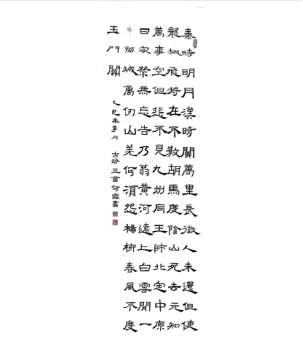 秦時明月漢時關萬里長征人未還但使
龍城飛將在不教胡馬度陰山死去元知
萬事空但悲不見九州同王師北定中原
日家祭無忘告乃翁黃河遠上白雲間一
片孤城萬仞山羌何須怨楊柳春風不度
玉門關
乙巳年